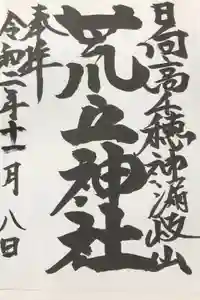 日向高千穂神漏岐山
荒立神社
奉拝
令和二年十一月八日